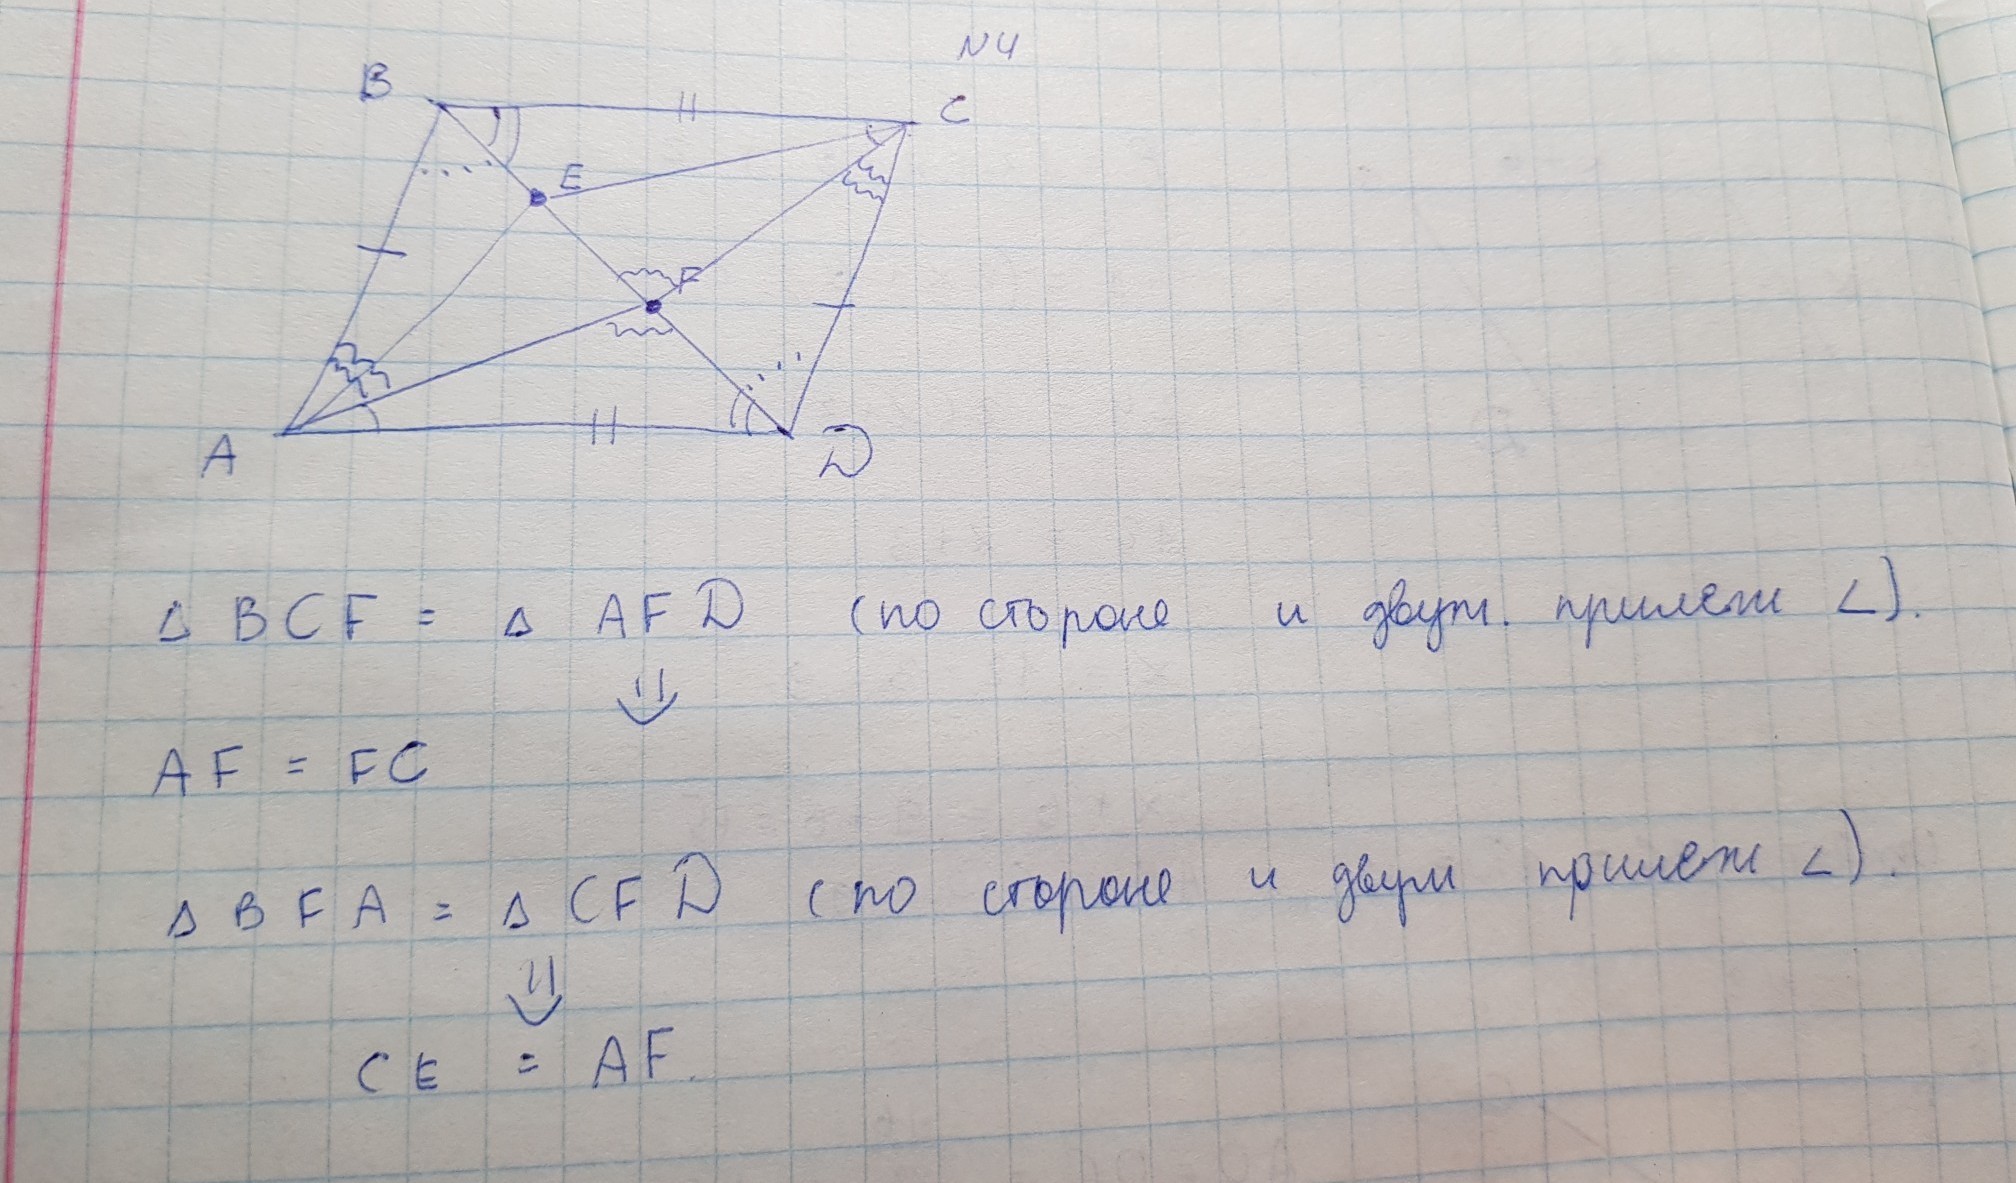 N4
B
C
E
F
A
D
Δ BCF = Δ AFD (по стороне и двум. прилеж ∠).
⇓
AF = FC
Δ BFA = Δ CFD (по стороне и двум прилеж ∠).
⇓
CE = AF.